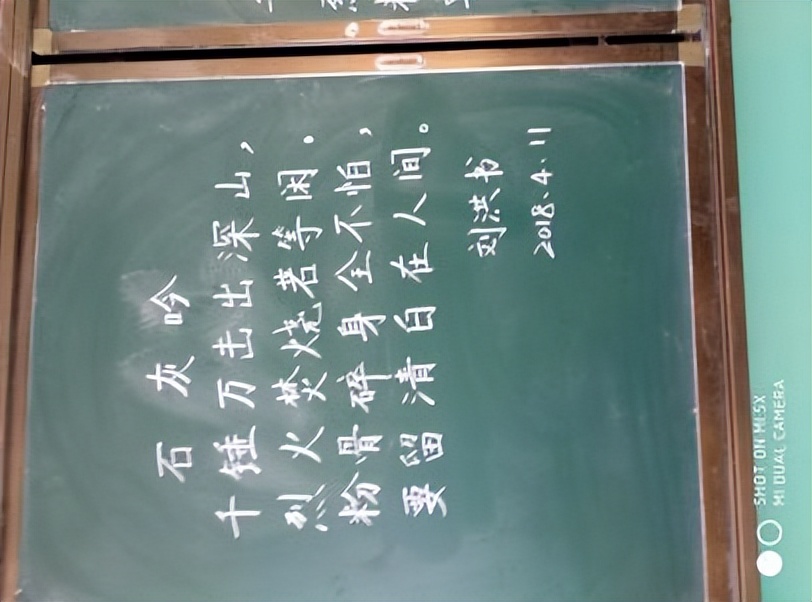 石灰吟
千锤万击出深山，
烈火焚烧若等闲。
粉骨碎身全不怕，
要留清白在人间。
刘洪书
2018.4.11
SHOT ON MI 5X
MI DUAL CAMERA